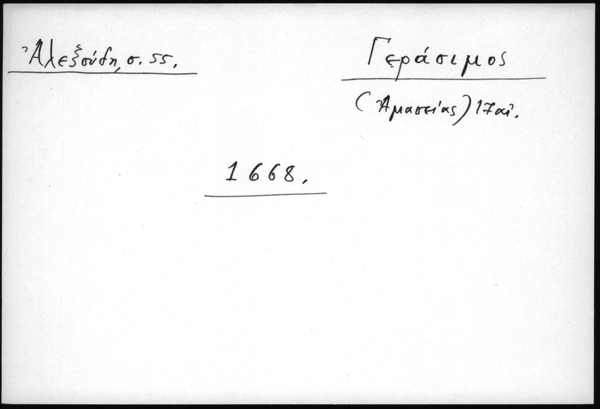 Ἀλεξούδη, σ. 55.
Γεράσιμος
(Ἀμασείας) 17αἰ.
1668.